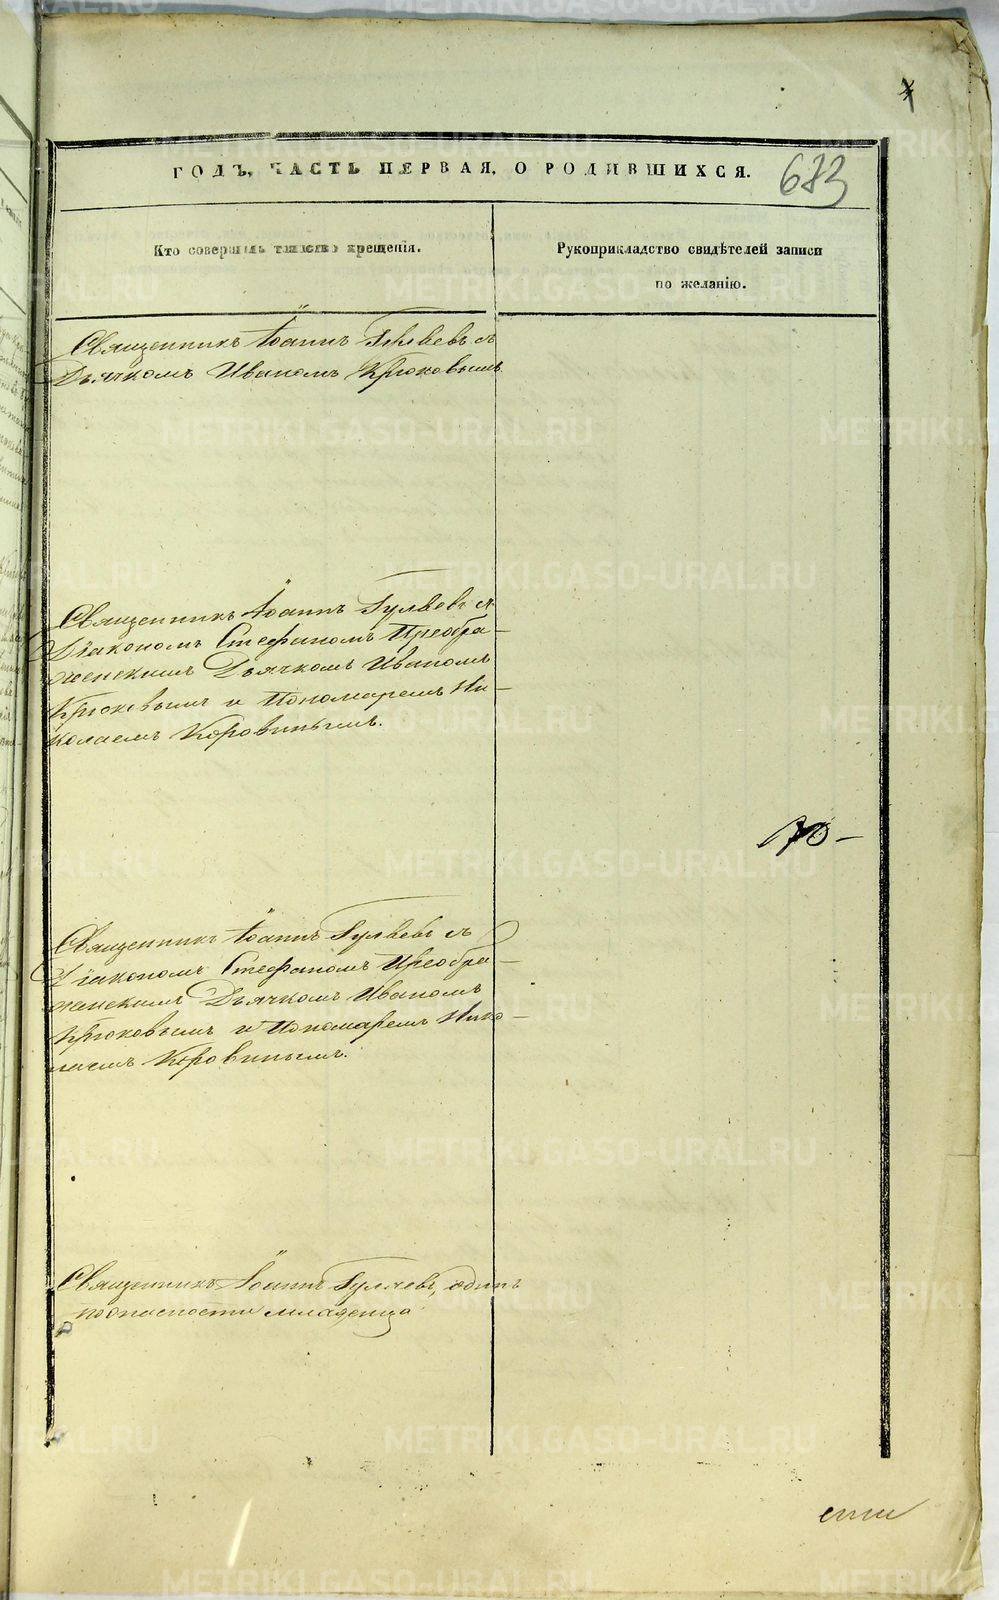 ГОДЪ, ЧАСТЬ ПЕРВАЯ, О РОДИВШИХСЯ.
683
Кто совершалъ таинство крещенія.
Рукоприкладство свидѣтелей записи
по желанію.
Священникъ Іоаннъ Гуляевъ съ
Дьячкомъ Иваномъ Крюковымъ
Священникъ Іоаннъ Гуляевъ съ
Діакономъ Стефаномъ Преобра-
женскимъ Дьячкомъ Иваномъ
Крюковымъ и Пономаремъ Ни-
колаемъ Коровинымъ.
Священникъ Іоаннъ Гуляевъ съ
Діакономъ Стефаномъ Преобра-
женскимъ Дьячкомъ Иваномъ
Крюковымъ и Пономаремъ Нико-
лаемъ Коровинымъ.
Священникъ Іоаннъ Гуляевъ, одинъ
по опасности младенца
METRIKI.GASO-URAL.RU